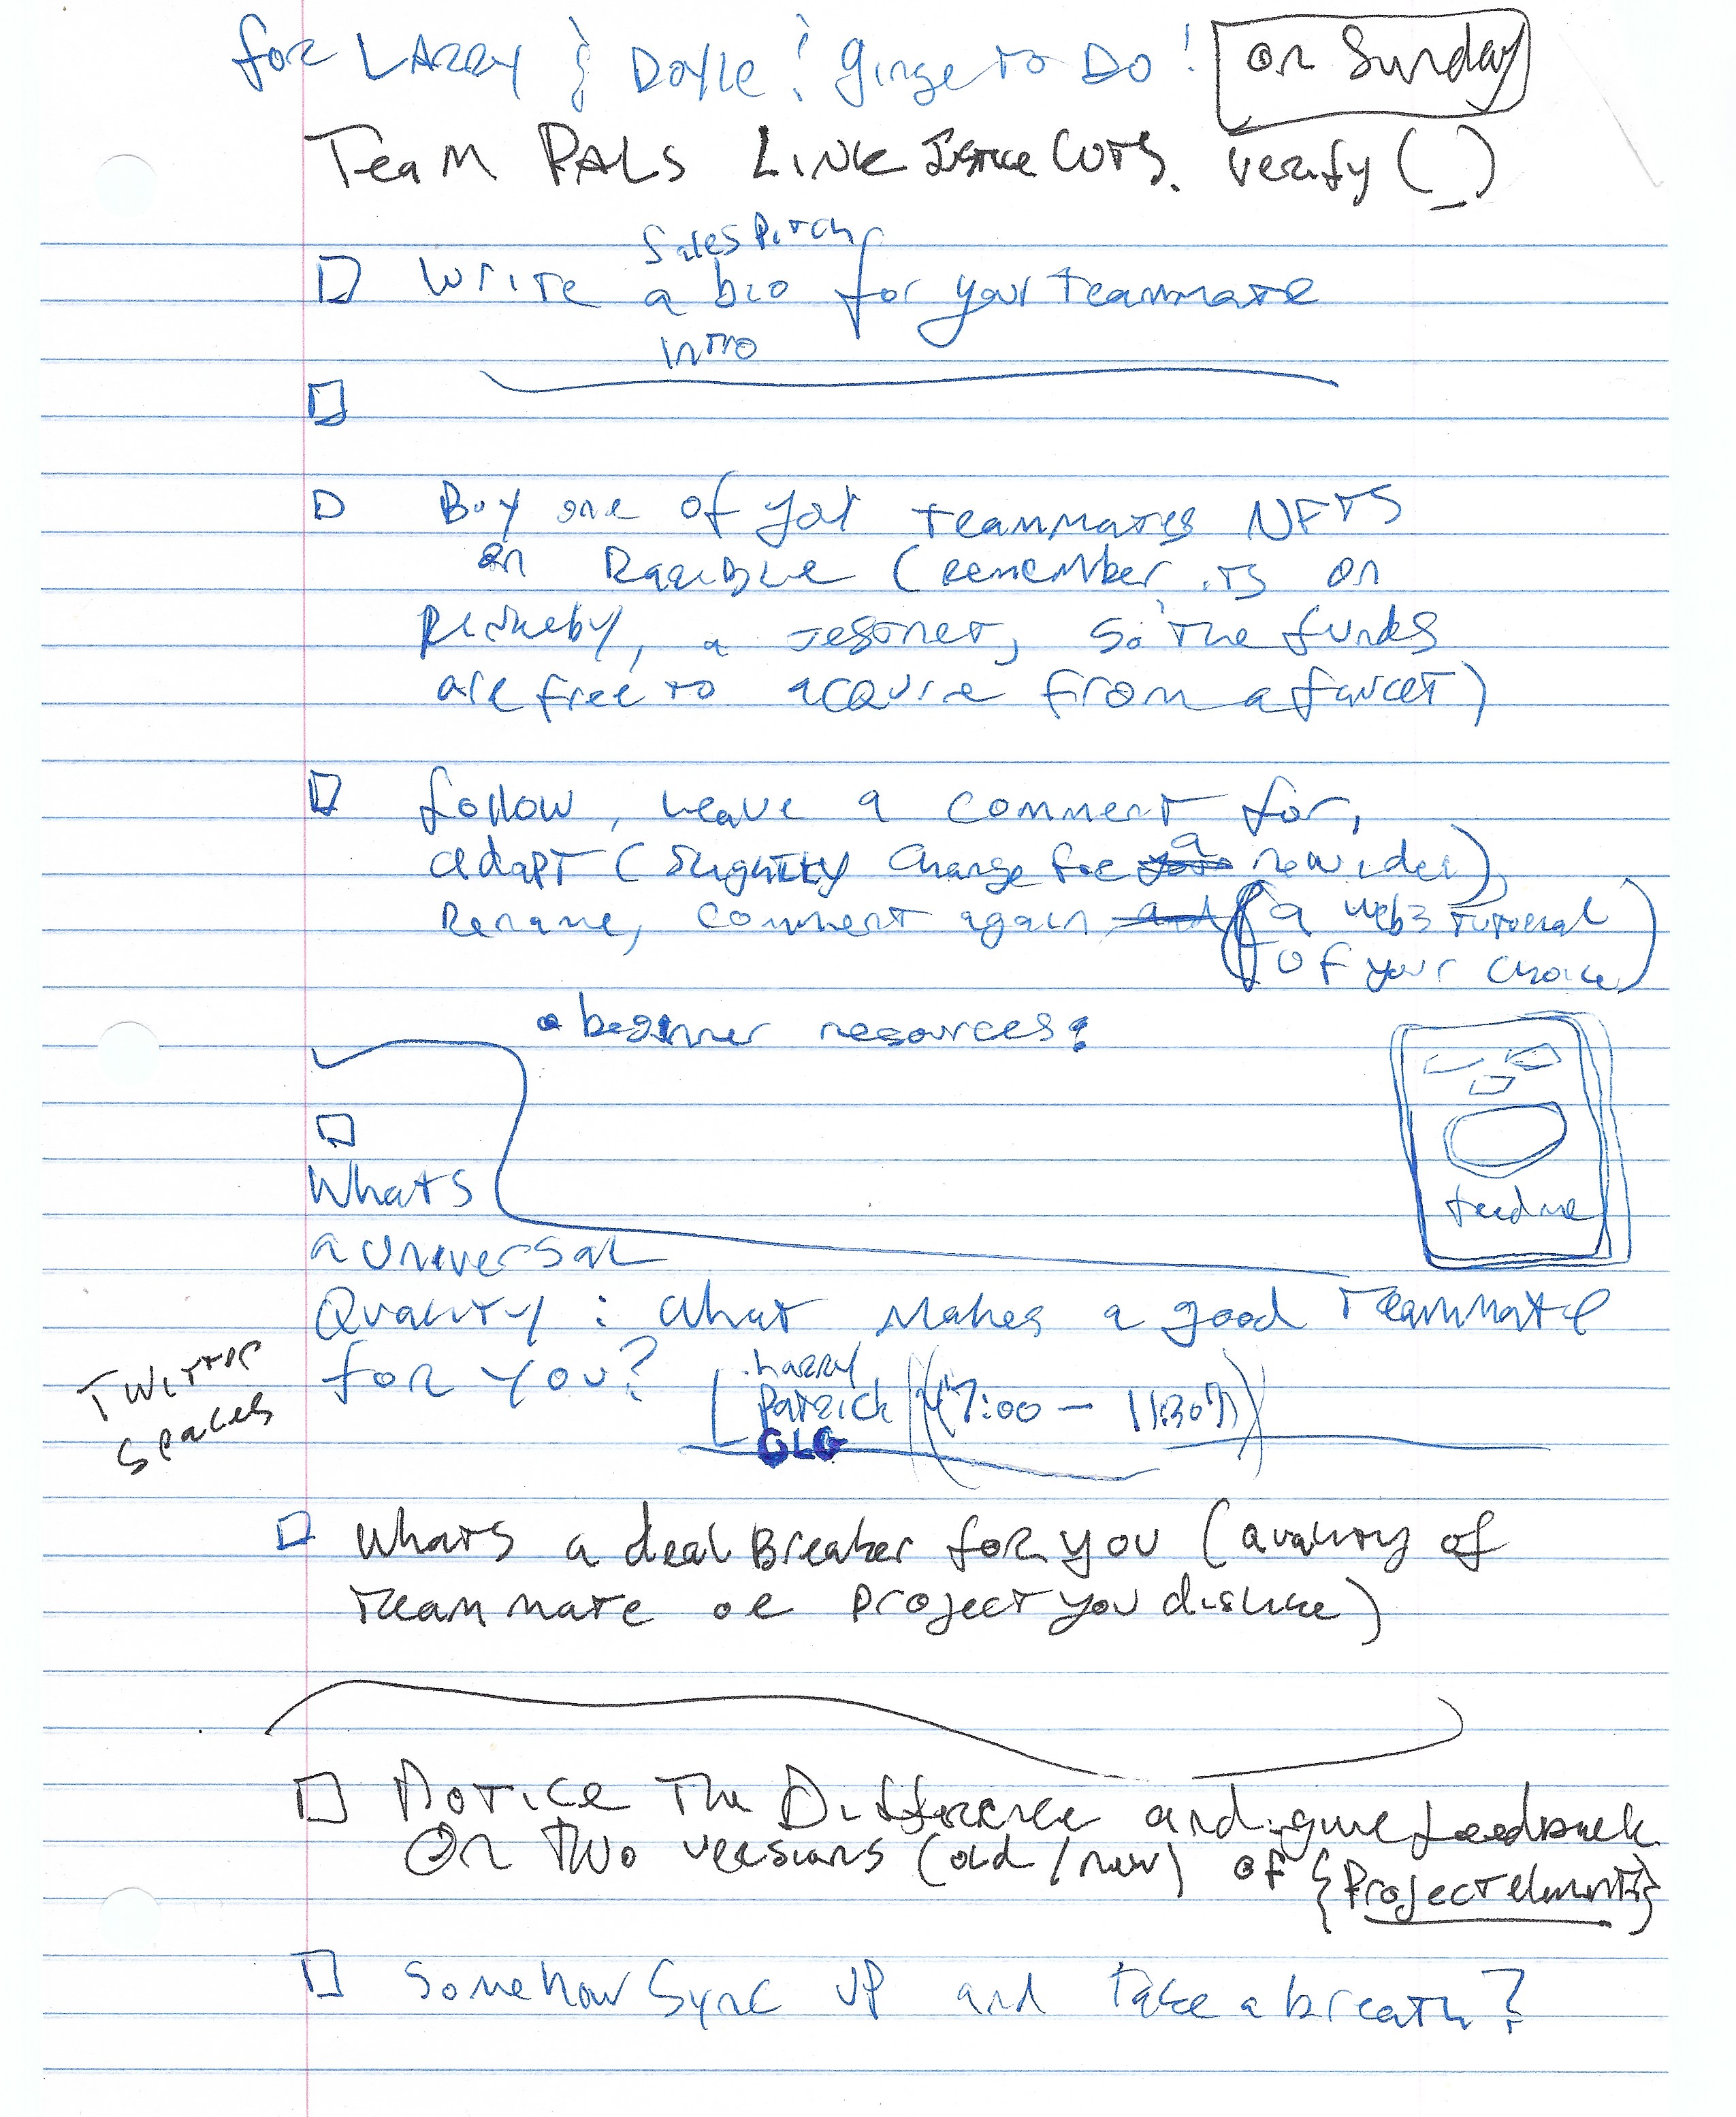 for LARRY & DOYLE! ginge to DO! on Sunday
Team PALS LINK verify (_)
Sales Pitch
☐ Write a bio for your teammate
intro
☐
☐ Buy one of your teammates NFTS
on Rarible (remember its on
Rinkeby, a testnet, so the funds
are free to acquire from a faucet)
☐ follow, leave a comment for,
adapt (slightly change for a new idea),
Rename, comment again (a web3 tutorial
of your choice)
• beginner resources?
☐
Whats
feedme
a universal
Quality : what makes a good teammate
for you?
Twitter
Spaces
Larry
Patrick (7:00 – 11:30?)
GLG
☐ Whats a deal Breaker for you (quality of
teammate or project you dislike)
☐ Notice The Difference and give feedback
On Two versions (old/new) of {Project elements}
☐ Somehow Sync up and take a breath?